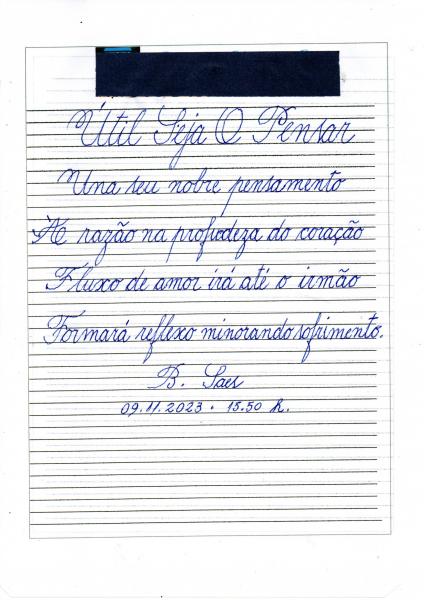 Útil Seja O Pensar
Una seu nobre pensamento
Á razão na profudeza do coração
Fluxo de amor irá até o irmão
Formará reflexo minorando sofrimento.
B. Saes
09.11.2023 · 15.50 h.